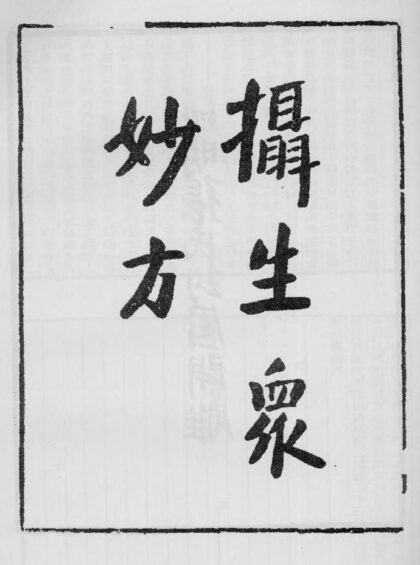 攝生眾
妙方